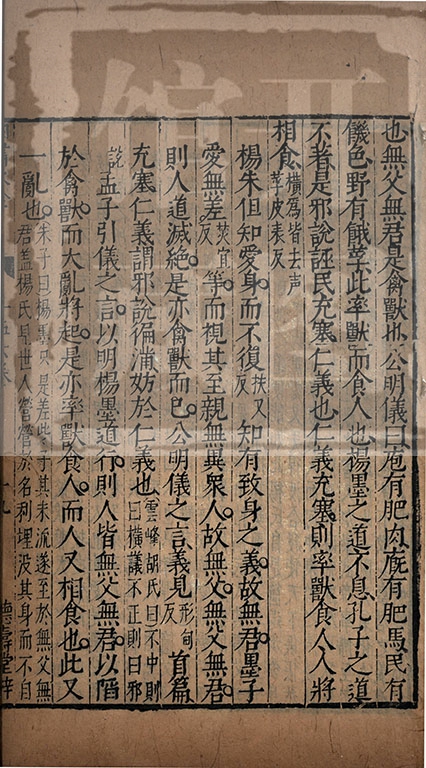 也無父無君是禽獸也公明儀曰庖有肥肉廐有肥馬民有
飢色野有餓莩此率獸而食人也楊墨之道不息孔子之道
不著是邪說誣民充塞仁義也仁義充塞則率獸食人人將
相食橫爲皆去声莩皮表反
楊朱但知愛身而不復扶又反知有致身之義故無君墨子
愛無差楚宜反等而視其至親無異衆人故無父無父無君
則人道滅絶是亦禽獸而已公明儀之言義見形甸反首篇
充塞仁義謂邪說徧滿妨於仁義也雲峰胡氏曰不中則曰橫議不正則曰邪
說孟子引儀之言以明楊墨道行則人皆無父無君以陷
於禽獸而大亂將起是亦率獸食人而人又相食也此又
一亂也朱子曰楊墨只是差些子其末流遂至於無父無君盖楊氏見世人營營於名利埋没其身而不自
十九
德壽堂梓